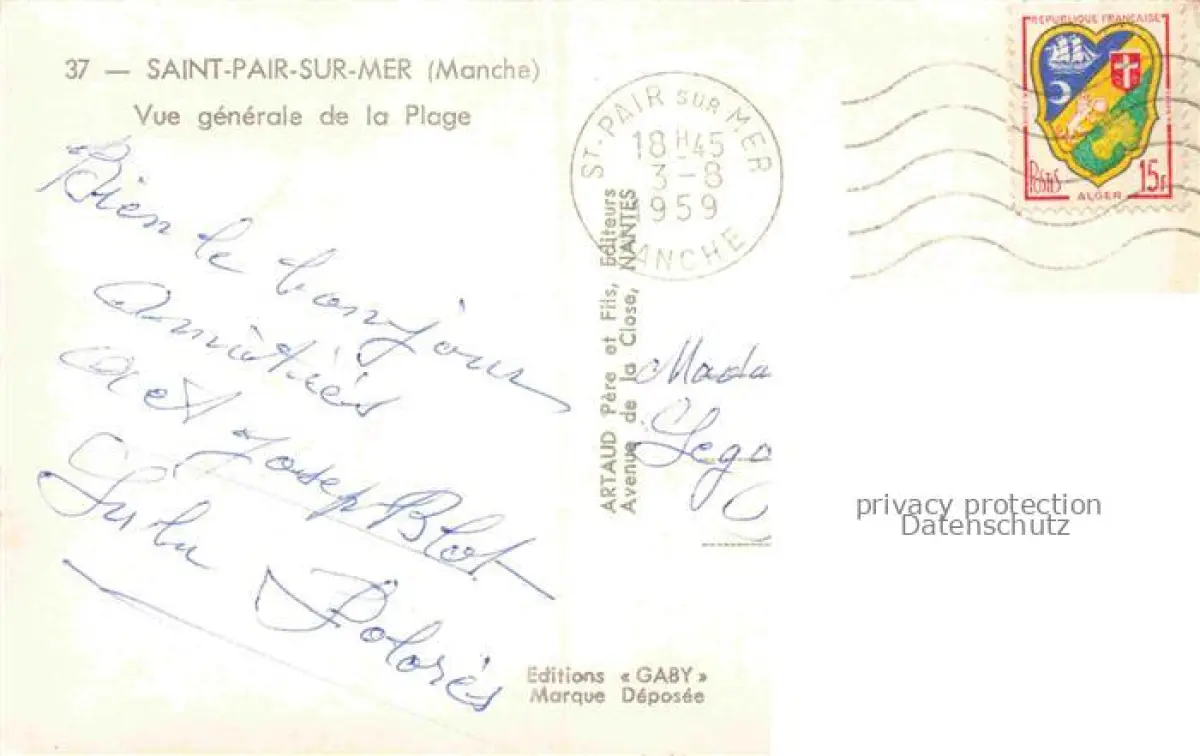 37 — SAINT-PAIR-SUR-MER (Manche)
Vue générale de la Plage
Bien le bonjour
Amitiés
Joseph Blot
Dolorès
ST-PAIR SUR MER
18H-45
3-8
1959
MANCHE
ARTAUD Père et Fils, Editeurs
Avenue de la Close, NANTES
REPUBLIQUE FRANÇAISE
POSTES
15F
ALGER
Mada
Lego
privacy protection
Datenschutz
Editions « GABY »
Marque Déposée